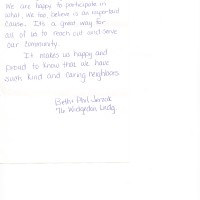 We are happy to participate in
what, we too, believe is an important
cause. It's a great way for
all of us to reach out and serve
our community.
It makes us happy and
proud to know that we have
such kind and caring neighbors.
Beth & Phil